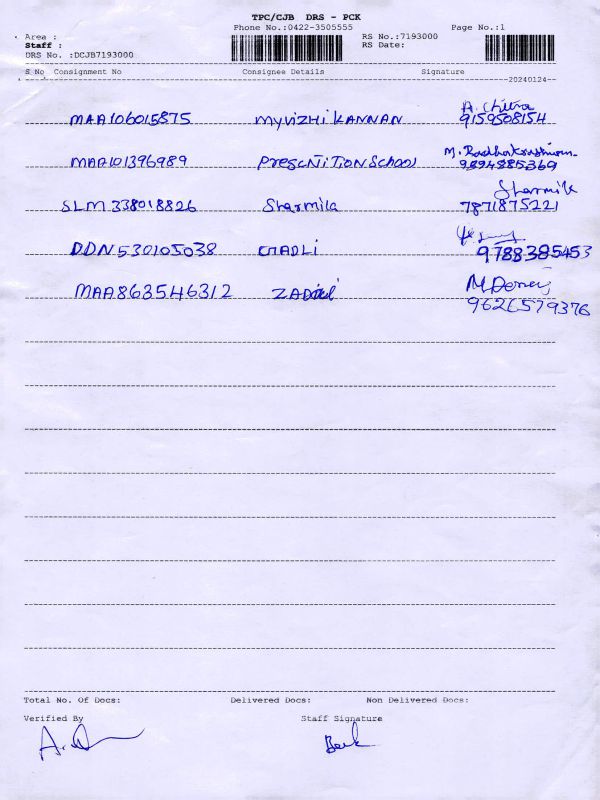 TPC/CJB DRS - PCK
Phone No.:0422-3505555 Page No.:1
Area : RS No.:7193000
Staff : RS Date:
DRS No. :DCJB7193000
S No Consignment No Consignee Details Signature
20240124
MAA106015875 MYVIZHI KANNAN A. Chitra
9159508154
MAA101396989 PresenitionSchool M. Radhakrishnan
9894885369
SLM338018826 Sharmila Sharmila
7871875221
DDN530105038
9788385453
MAA863546312
9626579376
Total No. Of Docs: Delivered Docs: Non Delivered Docs:
Verified By Staff Signature